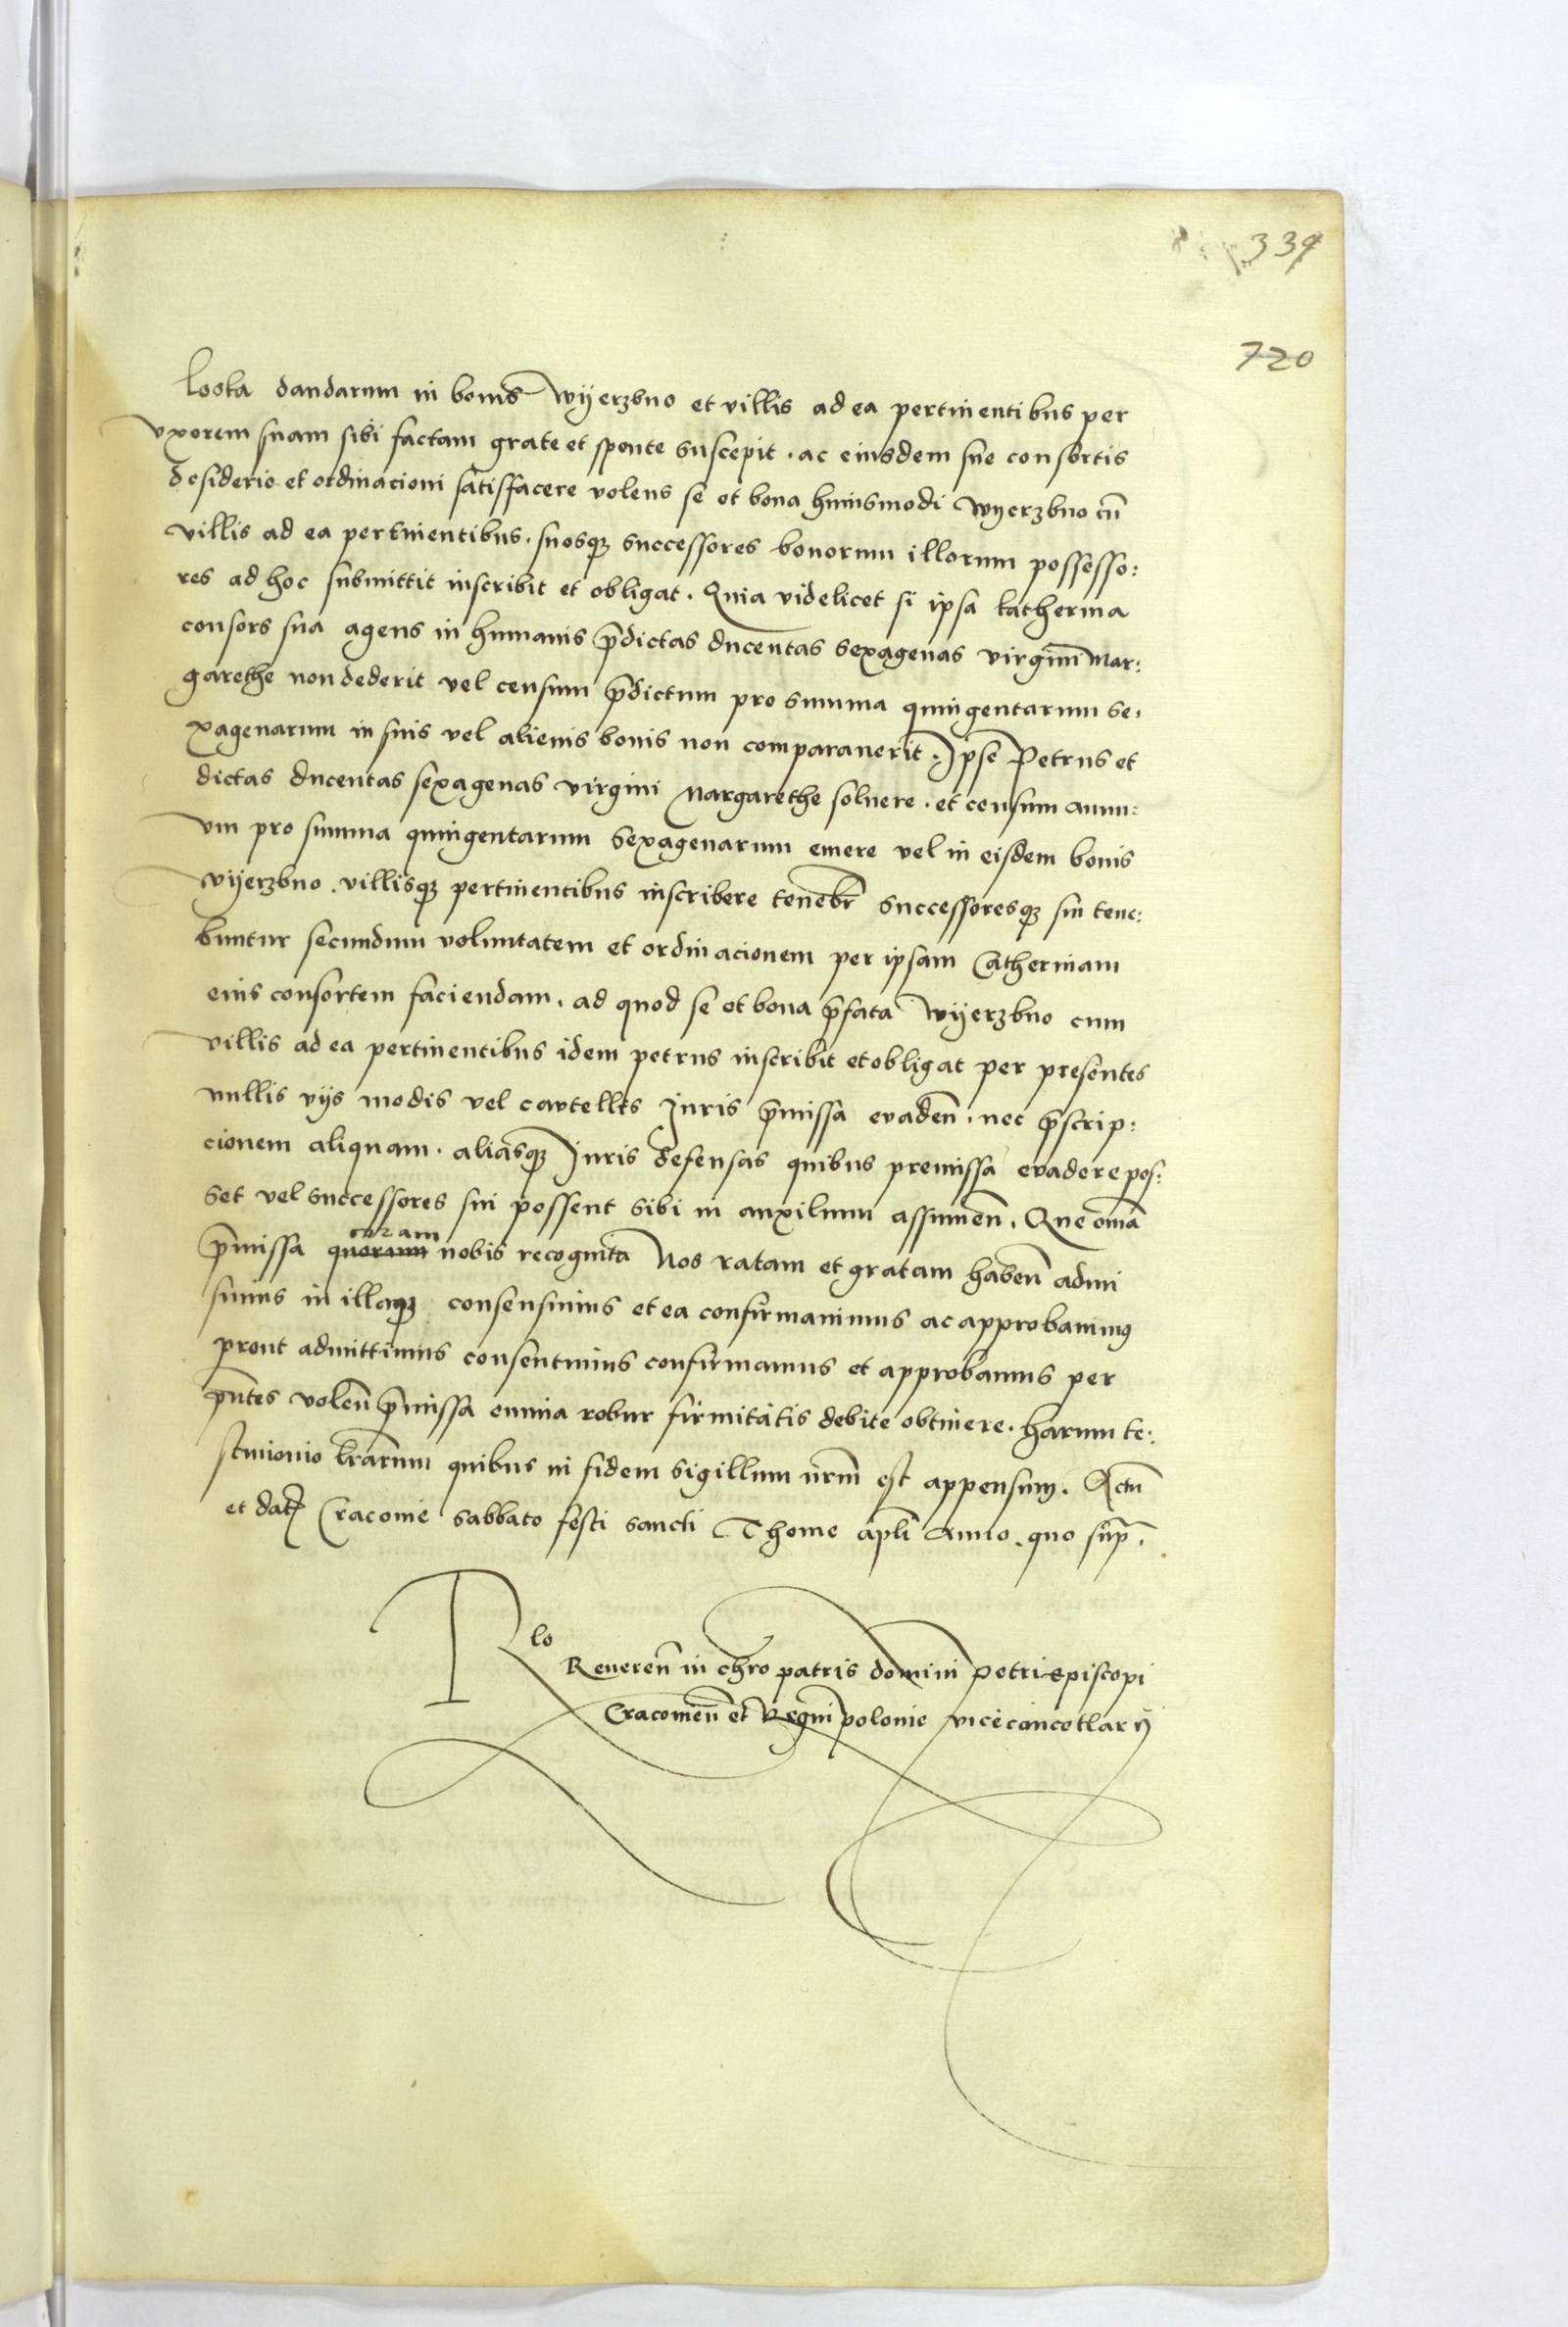 339
720
loola dandarum in bonis Wyerzbno et villis ad ea pertinentibus per
vxorem suam sibi factam grate et sponte suscepit . ac eiusdem sue consortis
desiderio et ordinacioni satisfacere volens se et bona huiusmodi Wyerzbno cū
villis ad ea pertinentibus . suosqꝫ successores bonorum illorum possesso:
res ad hoc submittit inscribit et obligat . Quia videlicet si ipsa katherina
consors sua agens in humanis p̄dictas ducentas sexagenas virgini Mar:
garethe non dederit vel censum p̄dictum pro summa quingentarum se,
xagenarum in suis vel alienis bonis non comparauerit . Ipse Petrus et
dictas ducentas sexagenas virgini Margarethe soluere . et censum annu:
um pro summa quingentarum sexagenarum emere vel in eisdem bonis
Wyerzbno . villisqꝫ pertinentibus inscribere tenebr̄ successoresqꝫ sui tene:
buntur secundum voluntatem et ordinacionem per ipsam Catherinam
eius consortem faciendam . ad quod se et bona p̄fata Wyerzbno cum
villis ad ea pertinentibus idem petrus inscribit et obligat per presentes
nullis vijs modis vel cautellis Juris p̄missa euadeñ . nec p̄scrip:
cionem aliquam . aliasqꝫ Juris defensas quibus premissa euadere pos:
set vel successores sui possent sibi in auxilium assumeñ . Que om̄ia
p̄missa quoram coram nobis recognita Nos ratam et gratam habeñ admi
simus in illaqꝫ consensimus et ea confirmauimus ac approbauimꝰ
prout admittimus consentimus confirmamus et approbamus per
p̄ntes voleñ p̄missa omnia robur firmitatis debite obtinere . harum te:
stimonio l̄rarum quibus in fidem sigillum nr̄m est appensum . Actū
et datꝭ Cracouie sabbato festi sancti Thome apl̄i Anno . quo sup̄ .
Rlo
Reuereñ in chr̄o patris domini Petri episcopi
Cracouieñ et Regni polonie vicecancellarij